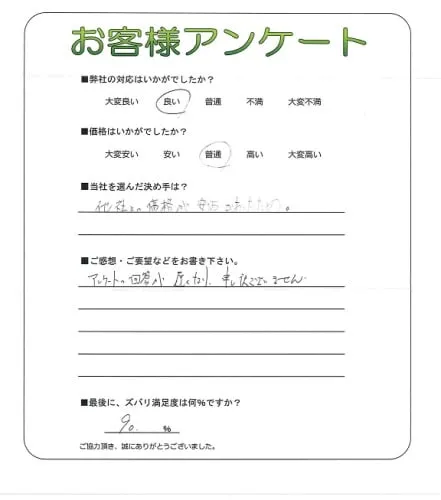 お客様アンケート
■弊社の対応はいかがでしたか？
大変良い 良い 普通 不満 大変不満
■価格はいかがでしたか？
大変安い 安い 普通 高い 大変高い
■当社を選んだ決め手は？
他社より価格が安
■ご感想・ご要望などをお書き下さい。
アンケートの回答が遅くなり、申し訳ございません
■最後に、ズバリ満足度は何%ですか？
90. %
ご協力頂き、誠にありがとうございました。